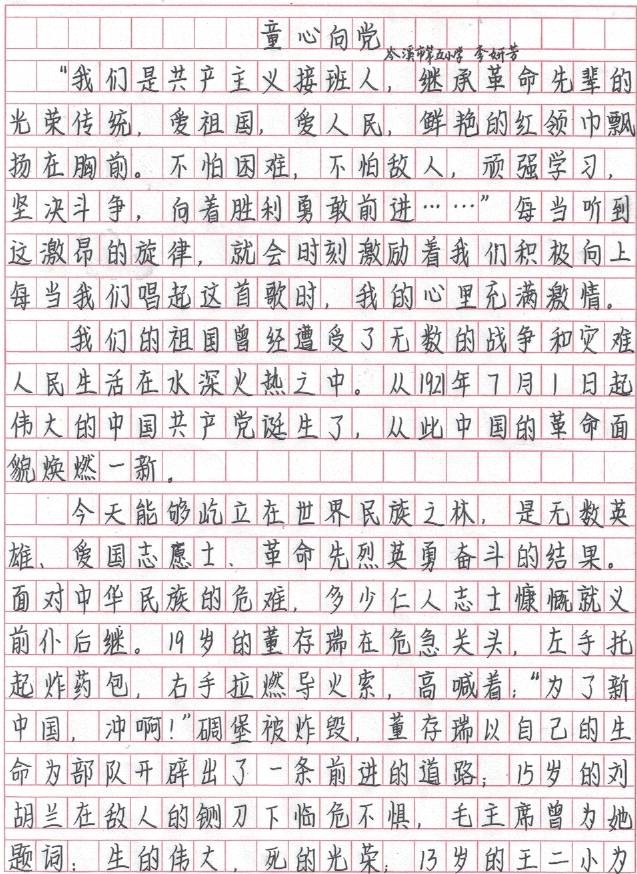 童心向党
岑溪市第五小学 李妍芳
“我们是共产主义接班人，继承革命先辈的
光荣传统，爱祖国，爱人民，鲜艳的红领巾飘
扬在胸前。不怕困难，不怕敌人，顽强学习，
坚决斗争，向着胜利勇敢前进……”每当听到
这激昂的旋律，就会时刻激励着我们积极向上
每当我们唱起这首歌时，我的心里充满激情。
我们的祖国曾经遭受了无数的战争和灾难
人民生活在水深火热之中。从1921年7月1日起
伟大的中国共产党诞生了，从此中国的革命面
貌焕燃一新。
今天能够屹立在世界民族之林，是无数英
雄、爱国志愿士、革命先烈英勇奋斗的结果。
面对中华民族的危难，多少仁人志士慷慨就义
前仆后继。19岁的董存瑞在危急关头，左手托
起炸药包，右手拉燃导火索，高喊着：“为了新
中国，冲啊！”碉堡被炸毁，董存瑞以自己的生
命为部队开辟出了一条前进的道路；15岁的刘
胡兰在敌人的铡刀下临危不惧，毛主席曾为她
题词：生的伟大，死的光荣；13岁的王二小为